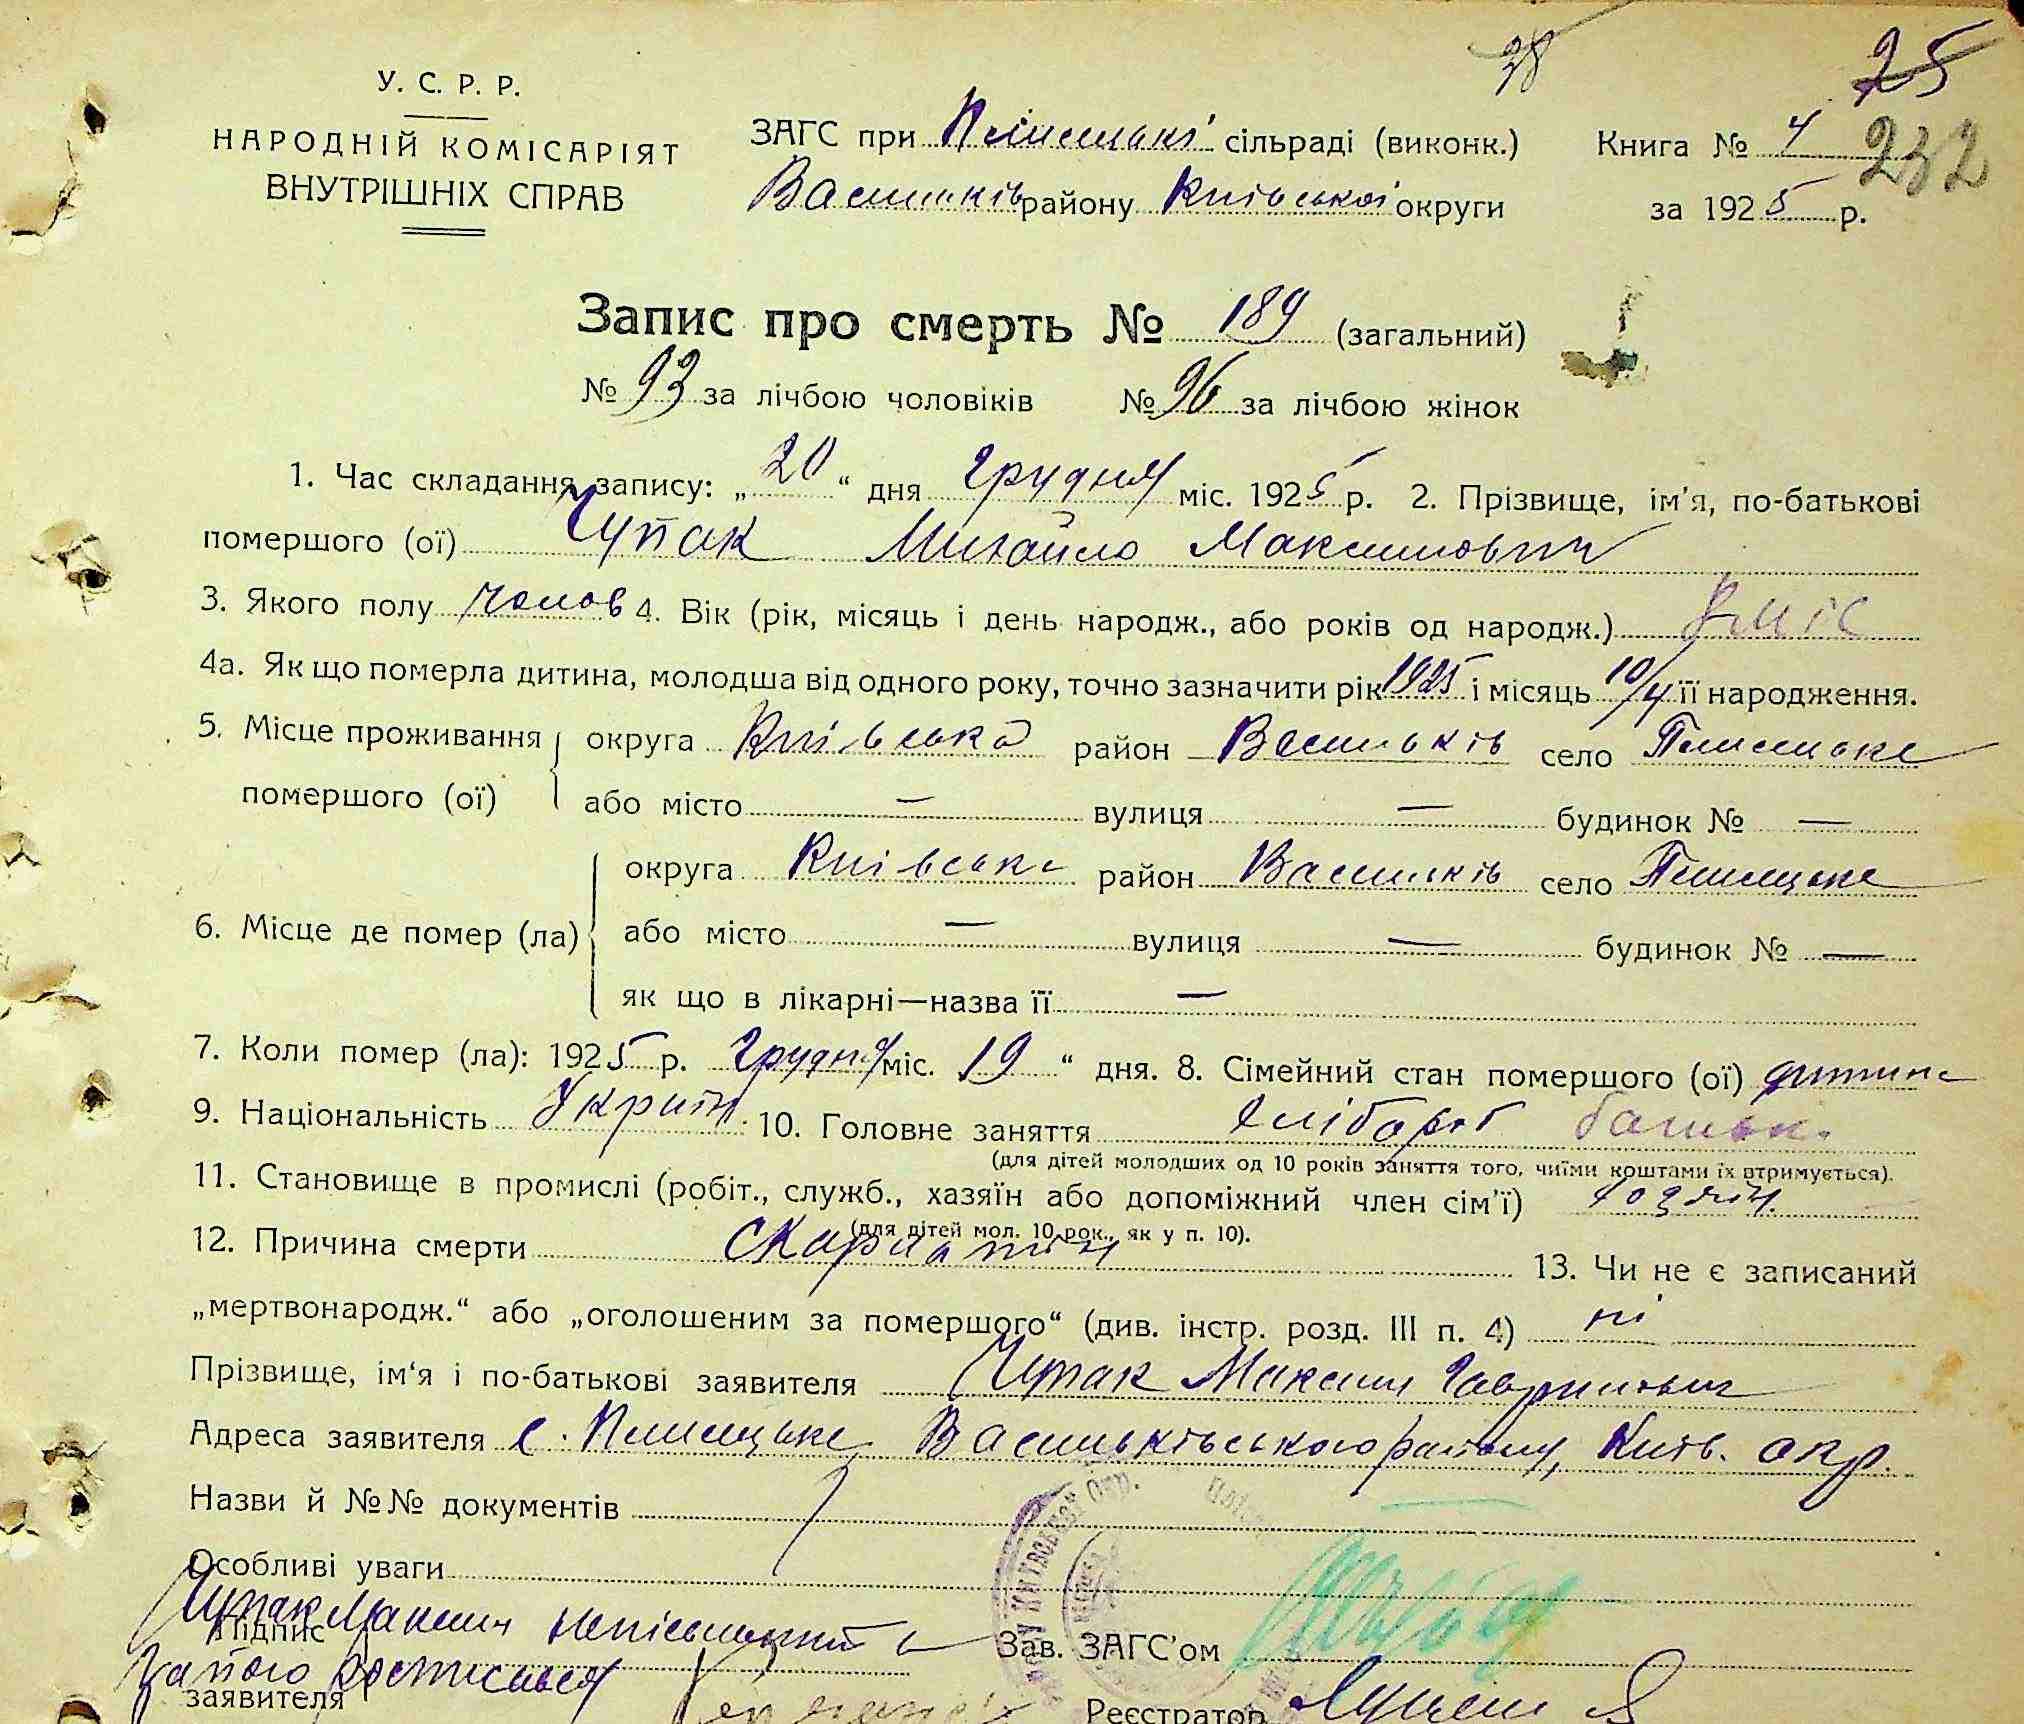 38 25
У. С. Р. Р.
НАРОДНІЙ КОМІСАРІЯТ
ВНУТРІШНІХ СПРАВ
ЗАГС при Плісецькі сільраді (виконк.)
Васильків району Київської округи
Книга № 4 232
за 1925 р.
Запис про смерть № 189 (загальний)
№ 93 за лічбою чоловіків № 96 за лічбою жінок
1. Час складання запису: „20“ дня Грудня міс. 1925 р. 2. Прізвище, ім’я, по-батькові
помершого (ої) Чупак Михайло Максимович
3. Якого полу чолов 4. Вік (рік, місяць і день народж., або років од народж.) 8 міс
4а. Як що померла дитина, молодша від одного року, точно зазначити рік 1925 і місяць 10/4 її народження.
5. Місце проживання округа Київська район Васильків село Плисецьке
помершого (ої) або місто — вулиця — будинок № —
округа Київська район Васильків село Плисецьке
6. Місце де помер (ла) або місто — вулиця — будинок № —
як що в лікарні—назва її —
7. Коли помер (ла): 1925 р. Грудня міс. 19 “ дня. 8. Сімейний стан помершого (ої) дитина
9. Національність Україн. 10. Головне заняття хлібороб батьк.
(для дітей молодших од 10 років заняття того, чиїми коштами їх втримується).
11. Становище в промислі (робіт., служб., хазяїн або допоміжний член сім’ї) хазяїн.
(для дітей мол. 10 рок., як у п. 10).
12. Причина смерти Скарлатин 13. Чи не є записаний
„мертвонародж.“ або „оголошеним за помершого“ (див. інстр. розд. III п. 4) ні
Прізвище, ім‘я і по-батькові заявителя Чупак Максим Гаврилович
Адреса заявителя с. Плисецьке Васильківського району, Київ. окр.
Назви й №№ документів
Особливі уваги
Чупак Максим неписьменний а
Підпис Зав. ЗАГС’ом
за його росписався
заявителя Реєстратор